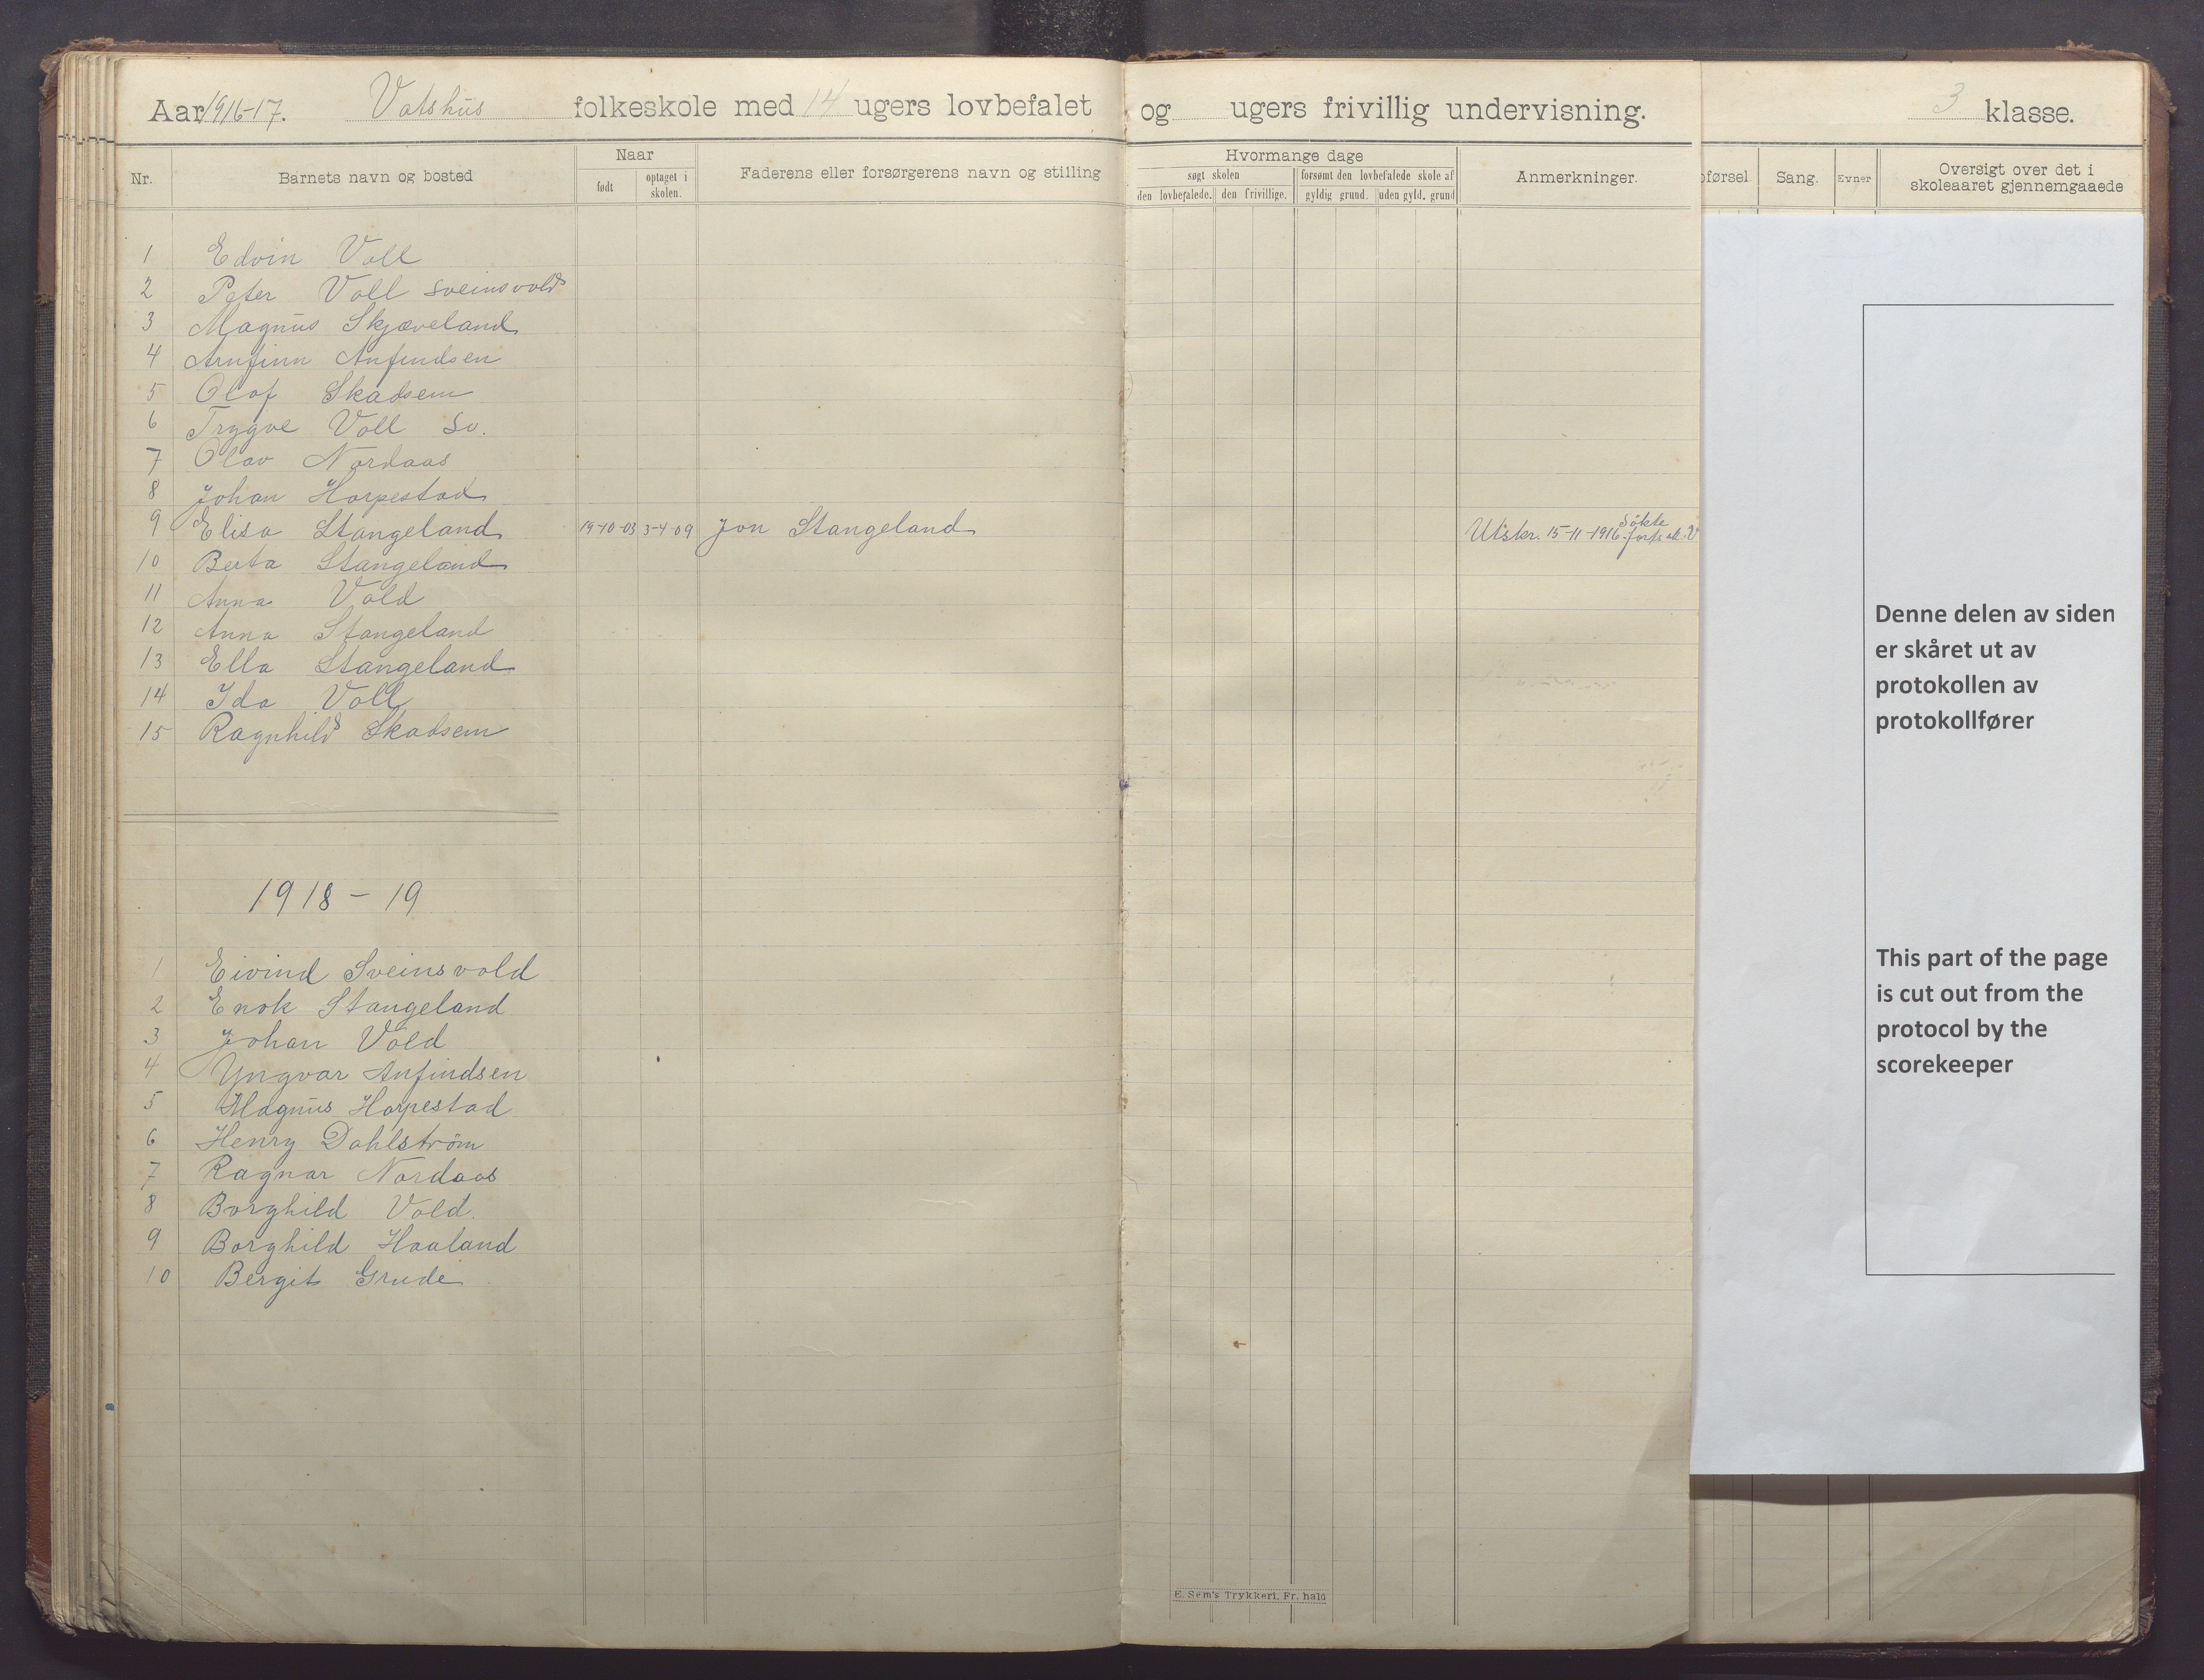 Aar 1916-17. Vatshus folkeskole med 14 ugers lovbefalet og ugers frivillig undervisning. 3 klasse.
Nr. Barnets navn og bosted Naar født optaget i skolen. Faderens eller forsørgerens navn og stilling Hvormange dage søgt skolen den lovbefalede. den frivillige. forsømt den lovbefalede skole af gyldig grund. uden gyld. grund Anmerkninger. oførsel. Sang. Evner Oversigt over det i skoleaaret gjennemgaaede
1 Edvin Voll
2 Peter Voll Sveinsvold
3 Magnus Skjæveland
4 Arnfinn Anfindsen
5 Olaf Skadsem
6 Trygve Voll Sv.
7 Olav Nordaas
8 Johan Horpestad
9 Elisa Stangeland 19-10-03 3-4-09 Jon Stangeland Utskr. 15-11-1916. Søkte
10 Berta Stangeland
11 Anna Vold
12 Anna Stangeland
13 Ella Stangeland
14 Ida Voll
15 Ragnhild Skadsem
1918-19
1 Eivind Sveinsvold
2 Enok Stangeland
3 Johan Vold
4 Yngvar Anfindsen
5 Magnus Horpestad
6 Henry Dahlstrøm
7 Ragnar Nordaas
8 Borghild Vold.
9 Borghild Haaland
10 Bergit Grude
E. Sem's Trykkeri, Fr. hald
Denne delen av siden
er skåret ut av
protokollen av
protokollfører
This part of the page
is cut out from the
protocol by the
scorekeeper